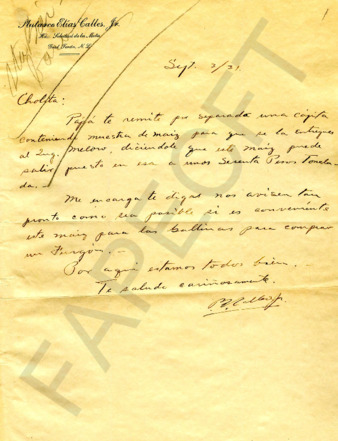 Plutarco Elías Calles, Jr.
Hda. Soledad de la Mota
Gral. Terán, N. L.
Sept. 3/31
Cholita:
Papá te remite por separado una cajita
conteniendo muestra de maiz para que se la entregues
al Ing. Meloro, diciéndole que este maiz puede
salir puesto en esa a unos Sesenta Pesos Tonela-
da.-
Me encarga te diga nos avisen tan
pronto como sea posible si es conveniente
este maiz para las Gallinas para comprar
un Furgón.-
Por aquí estamos todos bien.
Te saluda cariñosamente.
P. E. Calles Jr.
FAPECFT